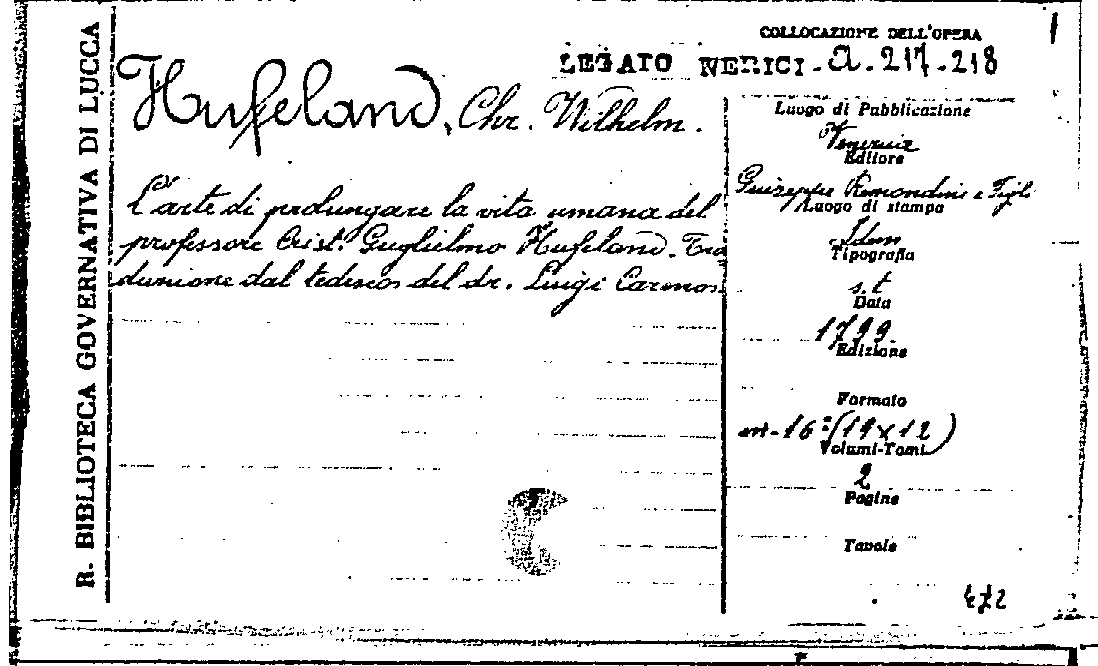 R. BIBLIOTECA GOVERNATIVA DI LUCCA
COLLOCAZIONE DELL'OPERA
LEGATO NERICI - A. 217-218
Hufeland, Chr. Wilhelm.
L'arte di prolungare la vita umana del
professore Crist. Guglielmo Hufeland. Tra
duzione dal tedesco del dr. Luigi
Luogo di Pubblicazione
Venezia
Editore
Giuseppe Remondini e Figli
Luogo di stampa
Idem
Tipografia
s.t
Data
1799
Edizione
Formato
in-16° (19x12)
Volumi-Tomi
2
Pagine
Tavole